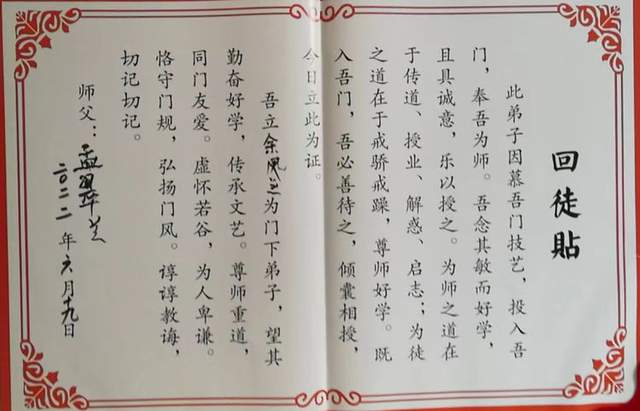 回徒貼
此弟子因慕吾门技艺，投入吾
门，奉吾为师。吾念其敏而好学，
且具诚意，乐以授之。为师之道在
于传道、授业、解惑、启志；为徒
之道在于戒骄戒躁，尊师好学。既
入吾门，吾必善待之，倾囊相授，
今日立此为证。
吾立余凤兰为门下弟子，望其
勤奋好学，传承文艺。尊师重道，
同门友爱。虚怀若谷，为人卑谦。
恪守门规，弘扬门风。谆谆教诲，
切记切记。
师父：孟翠兰
二〇二二年六月十九日